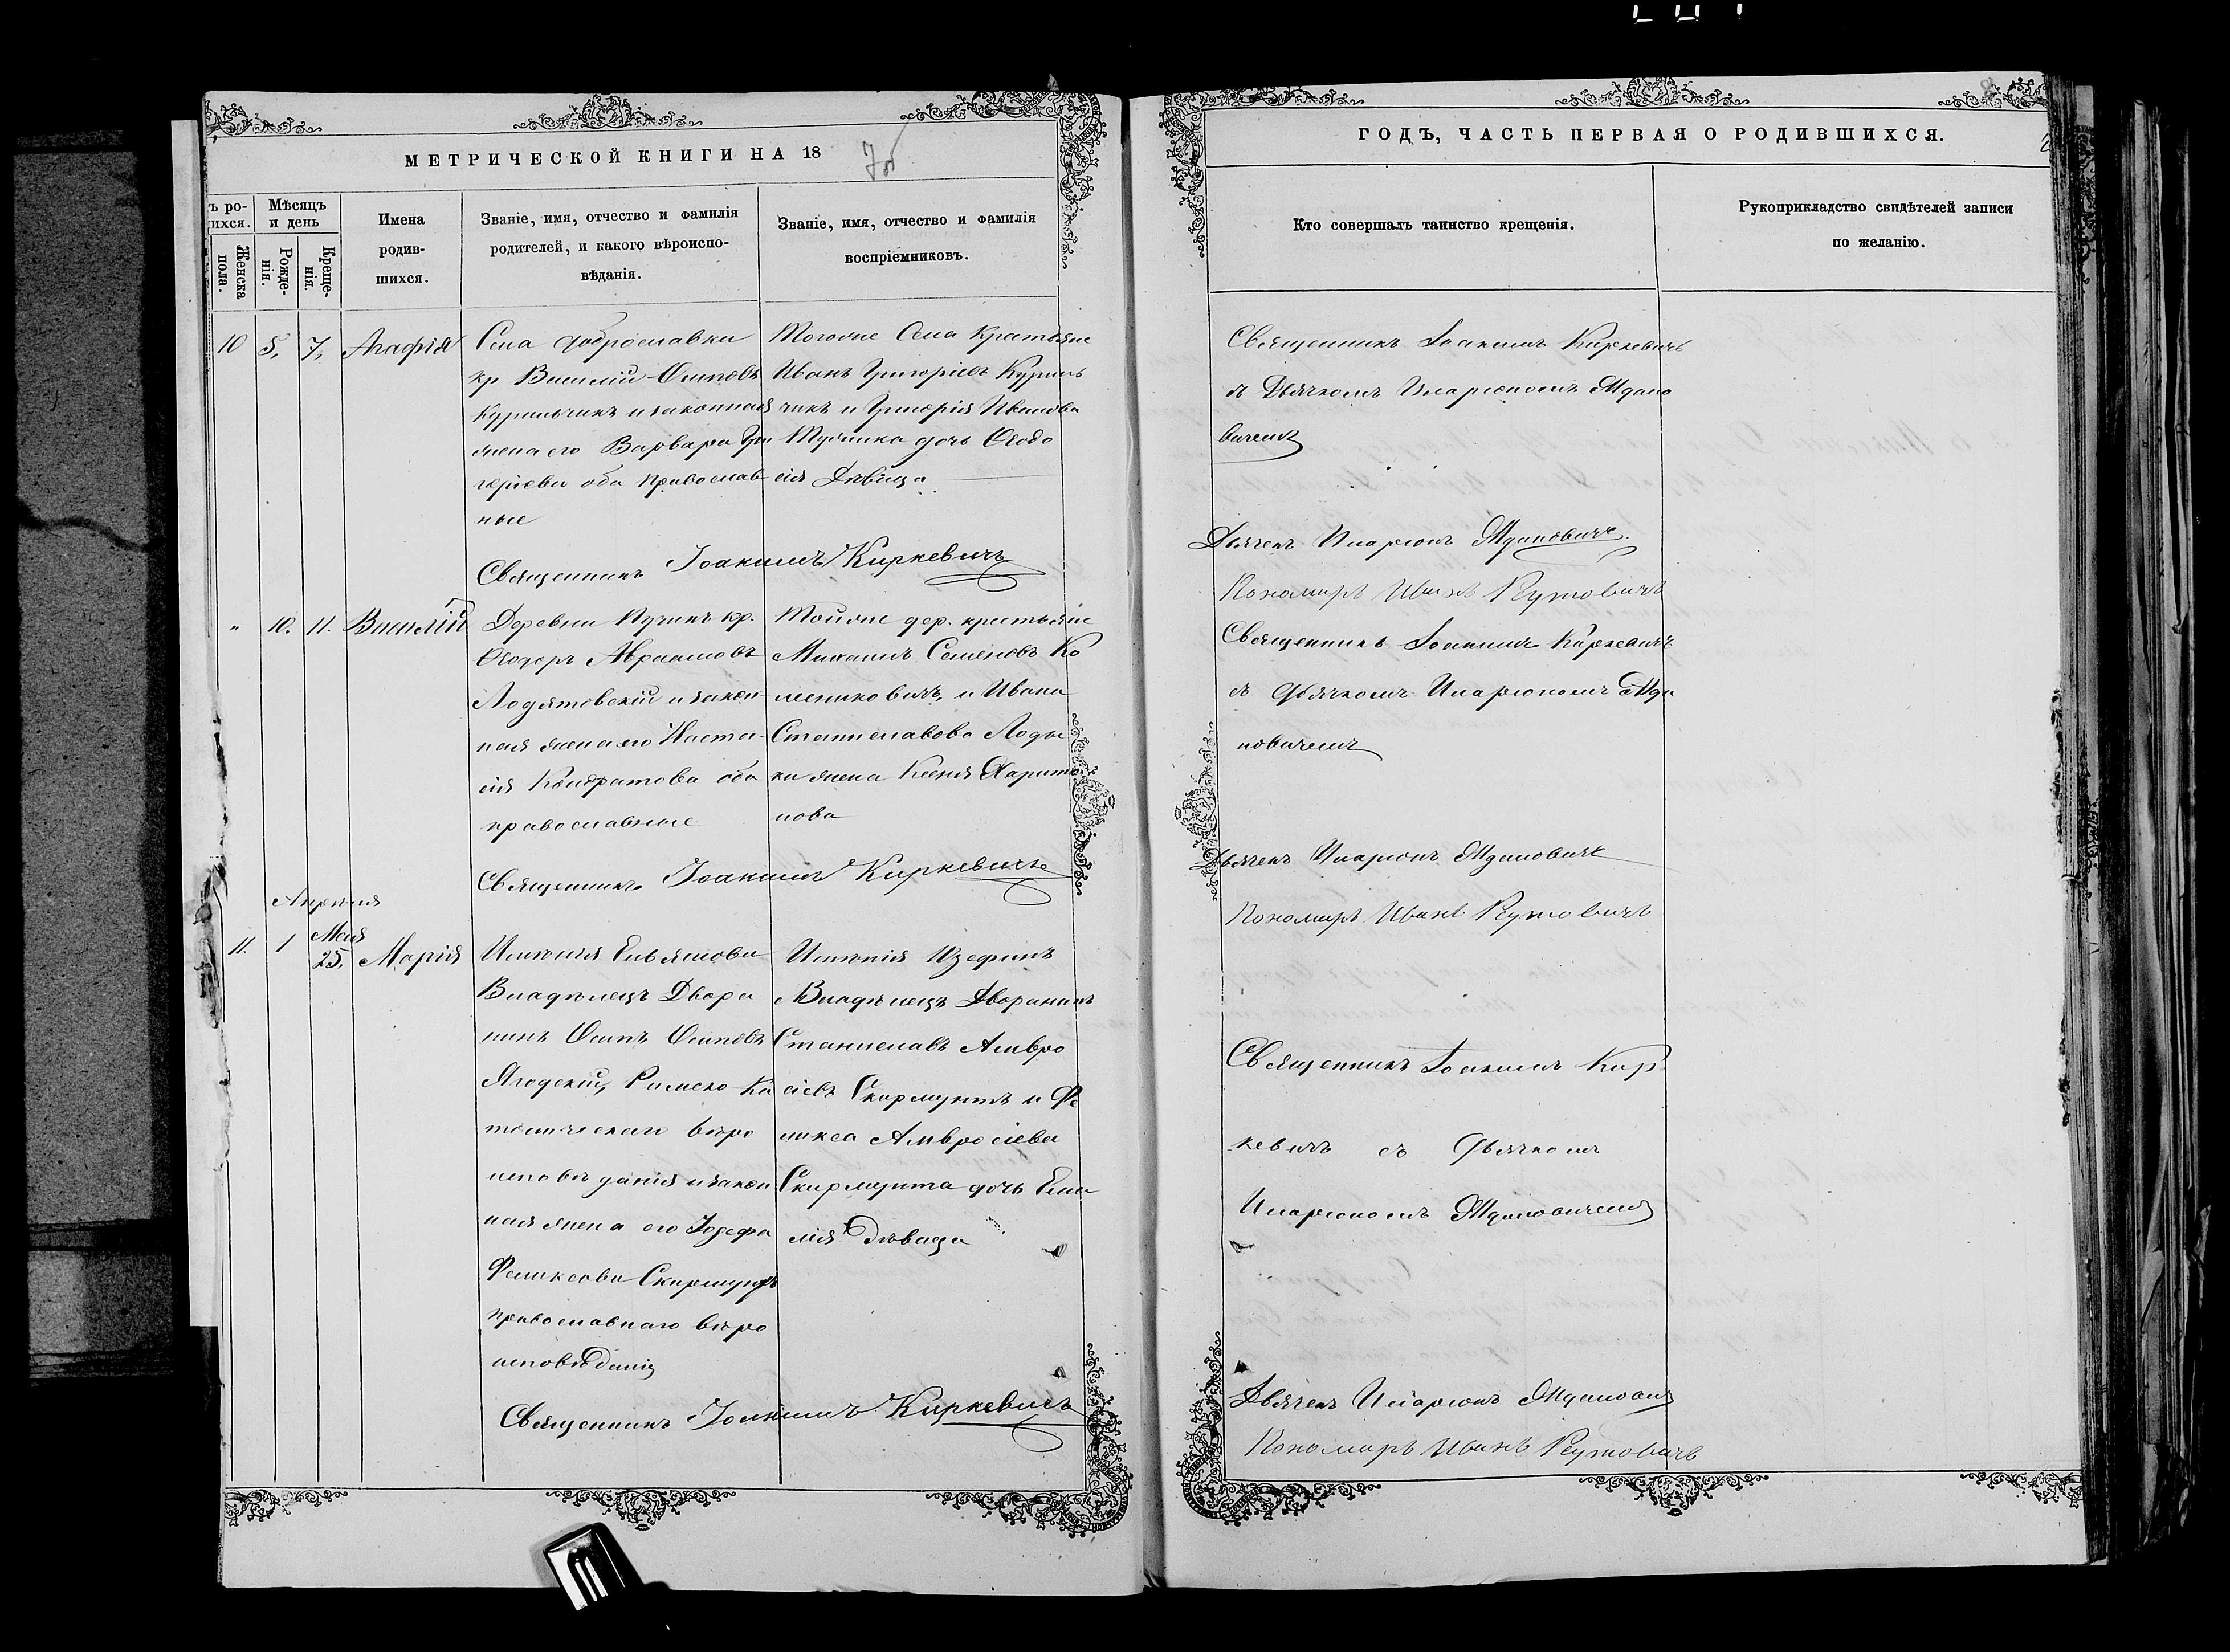 МЕТРИЧЕСКОЙ КНИГИ НА 18
ъ ро-
ихся.
Женска
пола.
Мѣсяцъ
и день
Рожде-
нія.
Креще-
нія.
Имена
родив-
шихся.
Званіе, имя, отчество и фамилія
родителей, и какого вѣроиспо-
вѣданія.
Званіе, имя, отчество и фамилія
воспріемниковъ.
10 5, 7, Агафія
Села Доброславки
кр Василій Осиповъ
Курильчикъ и законная
жена его Варвара Гри
горіева оба православ
ные
Тогоже Села Крестьяне
Иванъ Григоріевъ Куриль
чикъ и Григорія Иванова
дочь Ѳеодо
сія Дѣвица
Священникъ Іоакимъ Киркевичъ
" 10. 11. Василій
Деревни кр.
Ѳеодоръ Авраамовъ
и закон
ная жена его Наста
сія Кондратова оба
православные
Тойже дер. крестьяне
Михаилъ Семеновъ Ко
лениковичъ, и Ивана
Станиславова Лоды
ки жена Ксенія Харито
нова
Священникъ Іоакимъ Киркевичъ
Апрѣля
Мая
11. 1 25, Марія
Имѣнія
Владѣлецъ Дворя
нинъ Осипъ Осиповъ
Ягодскій, Римско-Ка
толическаго вѣро
исповѣданія и закон
ная жена его Іозефа
Феликсова Скирмунтъ
православнаго вѣро
исповѣданія
Имѣнія Юзефинъ
Владѣлецъ Дворянинъ
Станиславъ Амвро
сіевъ Скирмунтъ и Фе
ликса Амвросіева
Скирмунта дочь Еми
лія Дѣвица
Священникъ Іоакимъ Киркевичъ
ГОДЪ, ЧАСТЬ ПЕРВАЯ О РОДИВШИХСЯ.
Кто совершалъ таинство крещенія.
Рукоприкладство свидѣтелей записи
по желанію.
Священникъ Іоакимъ Киркевичъ
съ Дьячкомъ Иларіономъ Ждано
вичемъ
Дьячекъ Иларіонъ Ждановичъ.
Пономарь Иванъ Реутовичъ
Священникъ Іоакимъ Киркевичъ
съ Дьячкомъ Иларіономъ Жда
новичемъ
Дьячекъ Иларіонъ Ждановичъ
Пономарь Иванъ Реутовичъ
Священникъ Іоакимъ Кир
кевичъ съ Дьячкомъ
Иларіономъ Ждановичемъ
Дьячекъ Иларіонъ Ждановичъ
Пономарь Иванъ Реутовичъ